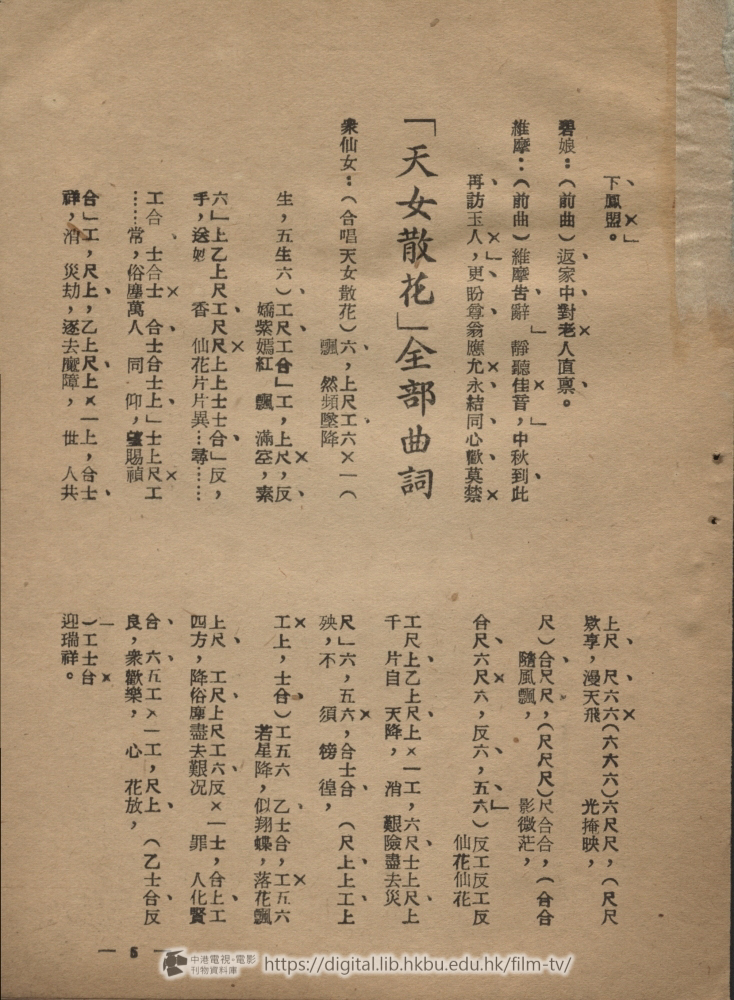 下鳳盟。
碧娘：（前曲）返家中對老人直禀。
維摩：（前曲）維摩告辭 靜聽佳音，中秋到此
再訪玉人，更盼尊翁應允永結同心歡莫禁
「天女散花」全部曲詞
衆仙女：（合唱天女散花）六，上尺工六×一（
飄 然頻墜降
生，五生六）工尺工合」工，上尺，反
嬌紫嫣紅 飄 滿空，素
六」上乙上尺工尺尺上上士士合」反，
手，送妙 香 仙花片片異…尋……
工合 士合士 合士合士上」士上尺工
……常，俗塵萬人 同 仰，望賜禎
合」工，尺上，乙上尺上×一上，合士
祥，消 災劫，逐去魔障， 世 人共
上尺 尺六六（六六六）六尺尺，（尺尺
歡享，漫天飛 光掩映，
尺）合尺尺，（尺尺尺）尺合合，（合合
隨風飄， 影微茫，
合尺六尺六，反六，五六）反工反工反
仙花仙花
工尺上乙上尺上×一工，六尺士上尺上
千 片自 天降， 消 艱險盡去災
尺」六，五六，合士合 （尺上上工上
殃，不 須 徬 徨，
工上，士合）工五六 乙士合，工五六
若星降，似翔蝶，落花飄
上尺 工尺上尺工六反×一士，合上工
四方，降俗塵盡去艱况 罪 人化賢
合 六五工×一工，尺上 （乙士合反
良，衆歡樂， 心 花放，
一）工士合
迎瑞祥。
— 5 —
中港電視·電影
刊物資料庫
https://digital.lib.hkbu.edu.hk/film-tv/